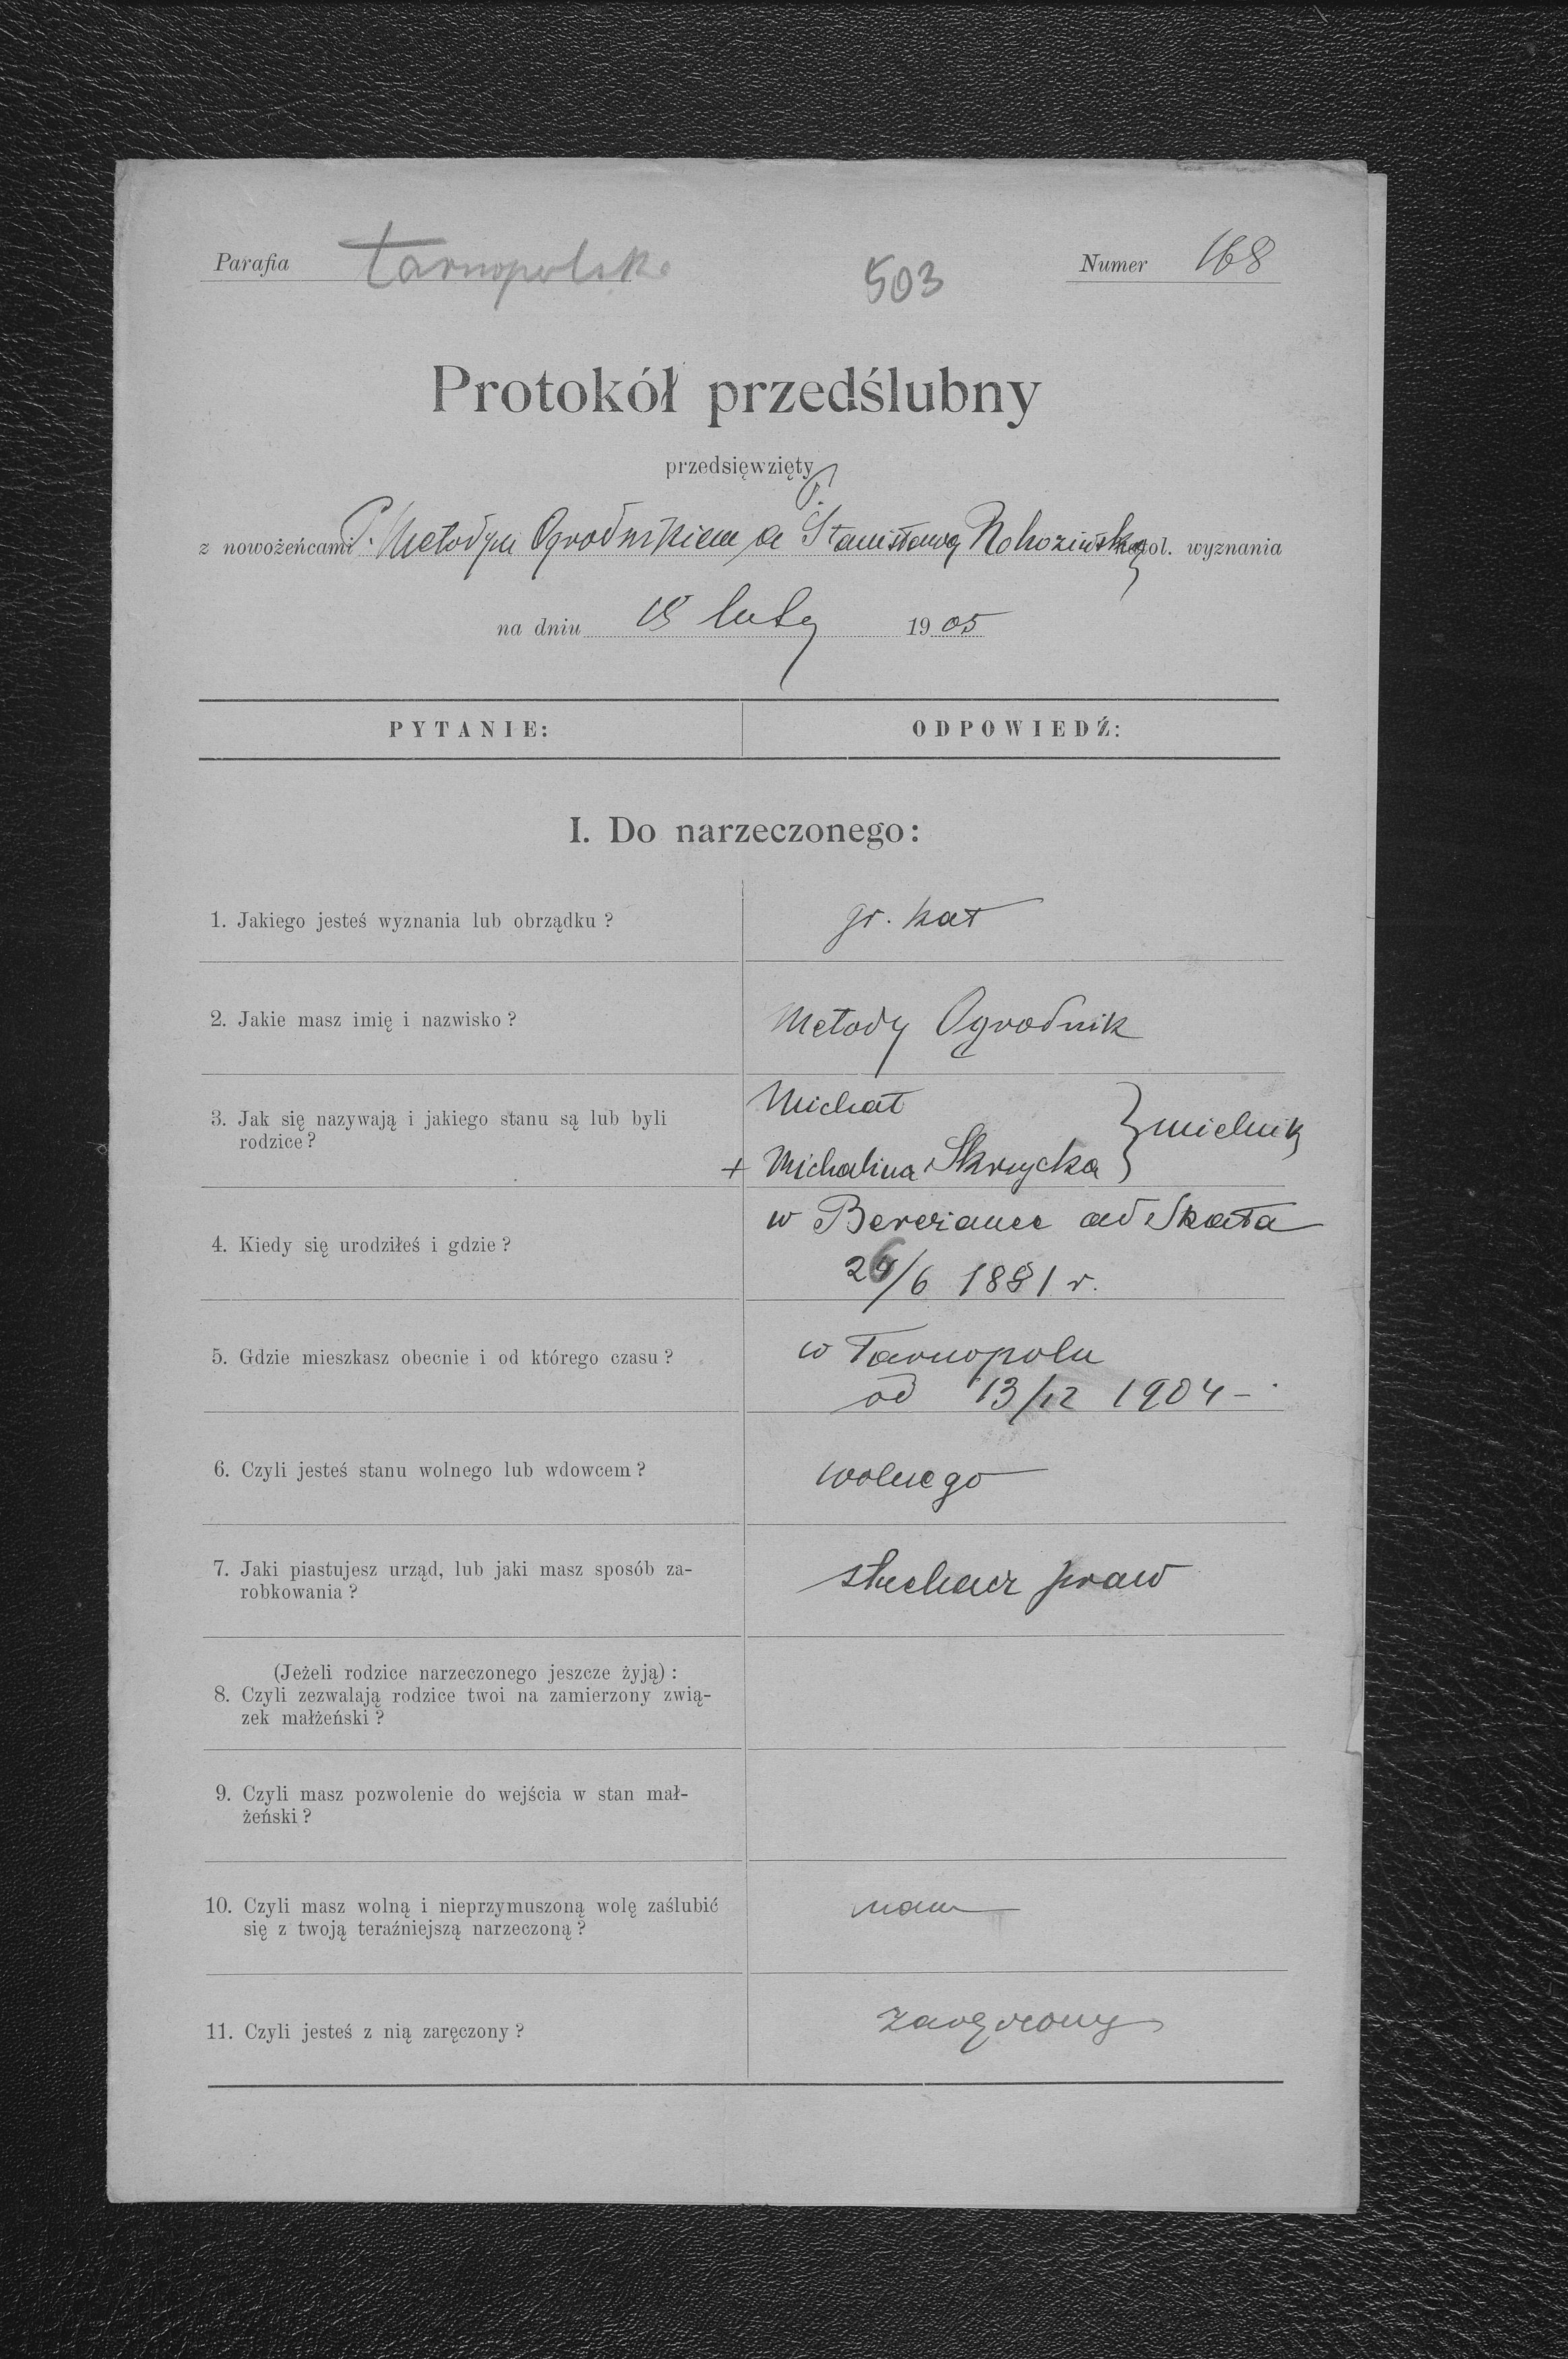 Parafia Tarnopolska 503 Numer 168
Protokół przedślubny
przedsięwzięty
z nowożeńcami P. Metodym Ogrodnikiem a P. Stanisławą Rohozińską katol. wyznania
na dniu 18 luty 1905
PYTANIE: ODPOWIEDŹ:
I. Do narzeczonego:
1. Jakiego jesteś wyznania lub obrządku? gr. kat
2. Jakie masz imię i nazwisko? Metody Ogrodnik
3. Jak się nazywają i jakiego stanu są lub byli
rodzice?
Michał
+ Michalina Skrzycka } mielnik
4. Kiedy się urodziłeś i gdzie?
w Berezance ad Skała
26/6 1881 r.
5. Gdzie mieszkasz obecnie i od którego czasu?
w Tarnopolu
od 13/12 1904 -
6. Czyli jesteś stanu wolnego lub wdowcem? wolnego
7. Jaki piastujesz urząd, lub jaki masz sposób za-
robkowania?
słuchacz praw
(Jeżeli rodzice narzeczonego jeszcze żyją):
8. Czyli zezwalają rodzice twoi na zamierzony zwią-
zek małżeński?
9. Czyli masz pozwolenie do wejścia w stan mał-
żeński?
10. Czyli masz wolną i nieprzymuszoną wolę zaślubić
się z twoją teraźniejszą narzeczoną?
mam
11. Czyli jesteś z nią zaręczony? zaręczony